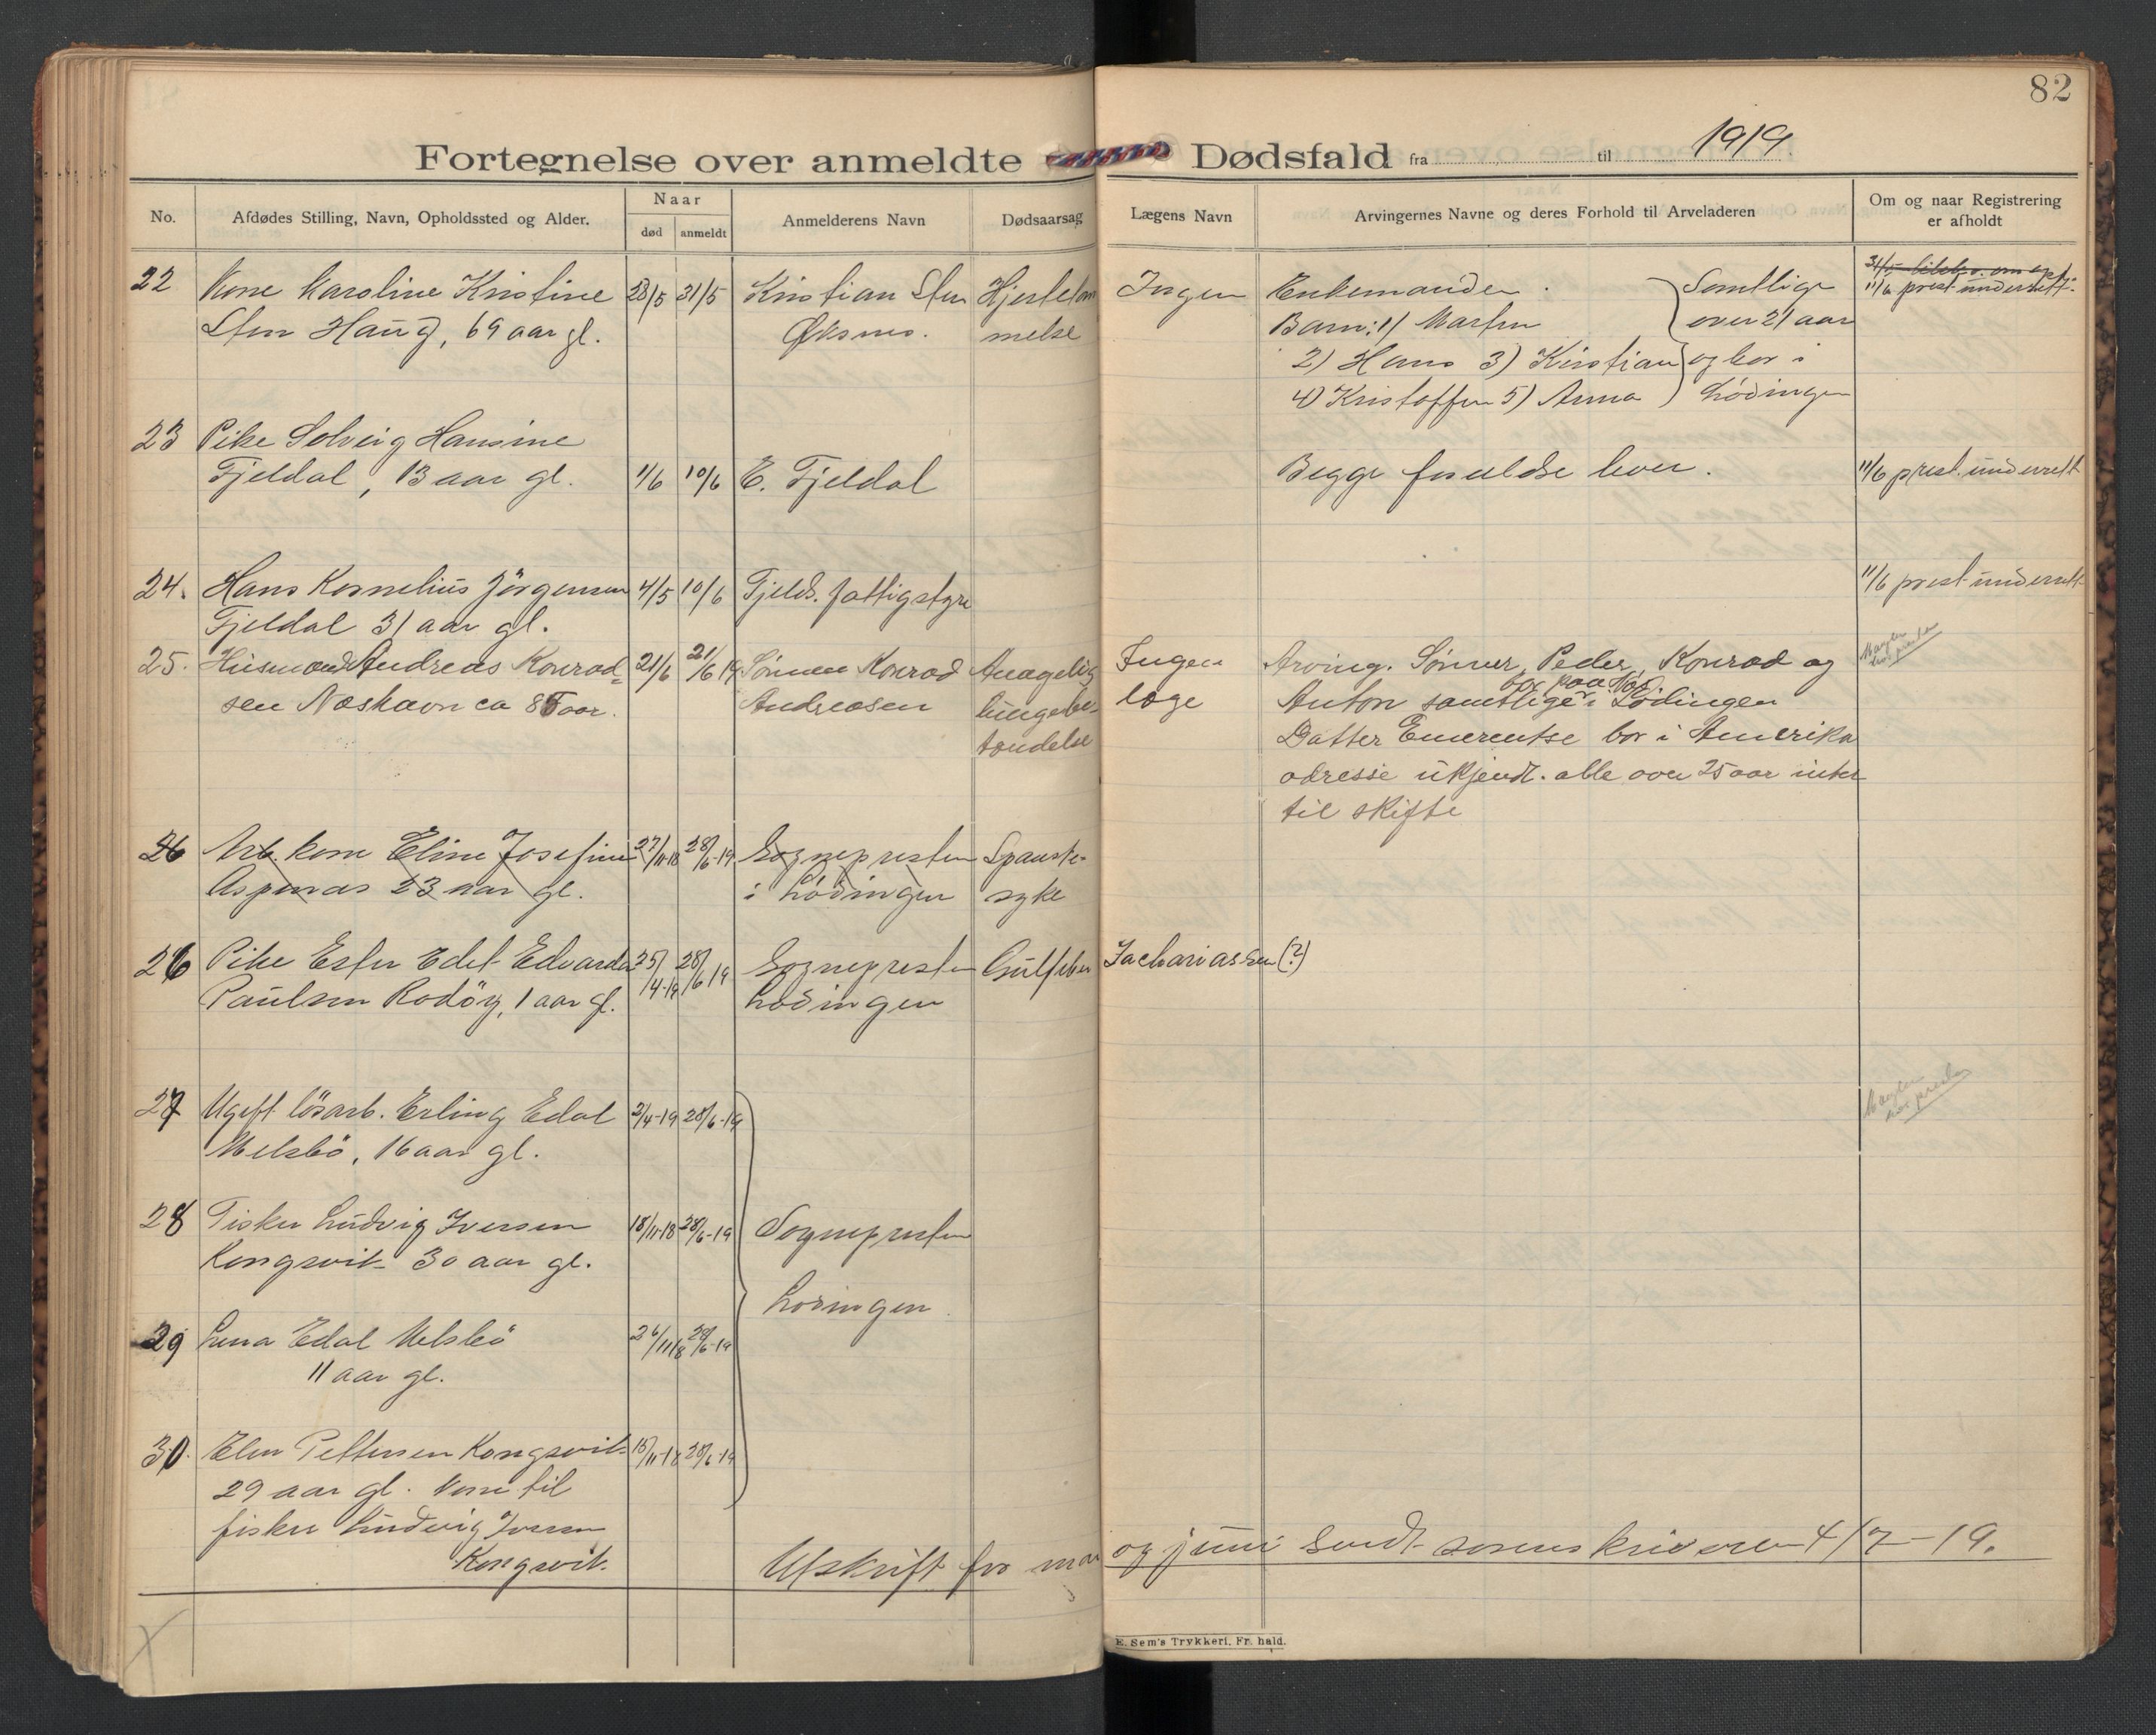 82
Fortegnelse over anmeldte Dødsfald fra til 1919.
No.
Afdødes Stilling, Navn, Opholdssted og Alder.
Naar
død
anmeldt
Anmelderens Navn
Dødsaarsag
Lægens Navn
Arvingernes Navne og deres Forhold til Arveladeren
Om og naar Registrering
er afholdt
22 Kone Karoline Kristine 28/5 31/5 Kristian Sten Hjertelam Ingen Enkemanden. Samtlige
11/6 prest. underrett.
Sten Haug, 69 aar gl. Øksnes. melse Barn: 1) Marten over 21 aar
2) Hans 3) Kristian og bor i
4) Kristoffer 5) Anna Lødingen
23 Pike Solveig Hansine
Fjeldal, 13 aar gl. 1/6 10/6 E. Fjeldal Begge foreldre lever. 11/6 prest. underrett
24. Hans Kornelius Jörgensen 4/5 10/6 Fjeld. fattigstyre 11/6 prest underrett
Fjeldal 31 aar gl.
25. Husmand Andreas Konrad= 21/6 21/6 19 Sønnen Konrad Antagelig Ingen Arving. Sønner, Peder, Konrad og
sen Næshavn ca 85 aar. Andreasen lungebe= læge Anton samtlige i Lødingen
tændelse Datter Emerentse bor i Amerika
adresse ukjendt. alle over 25 aar intet
til skifte
26 Arb. kone Eline Josefine 27/11-18 28/6-19 Sognepresten Spanske-
Aspenes 23 aar gl. i Lødingen syke
26 Pike Ester Edel Edvarda 25/4-19 28/6 19 Sognepresten Gulfeber Zachariassen (?)
Paulsen Rodöy, 1 aar gl. Lødingen
27 Ugift lösarb. Erling Edal 2/4-19 28/6-19
Melsbö, 16 aar gl.
28 Fisker Ludvig Iversen 18/11-18 28/6-19 Sognepresten
Kongsvik 30 aar gl.
Lødingen.
29 Lena Edal Melsbö 26/11 18 28/6-19
11 aar gl.
30. Elen Pettersen Kongsvik 15/11-18 28/6-19
29 aar gl. Kone til
fisker Ludvig Iversen
Kongsvik.
Utskrift fra mai og juni sendt sorenskriveren 4/7-19.
E. Sem's Trykkeri, Fr. hald.